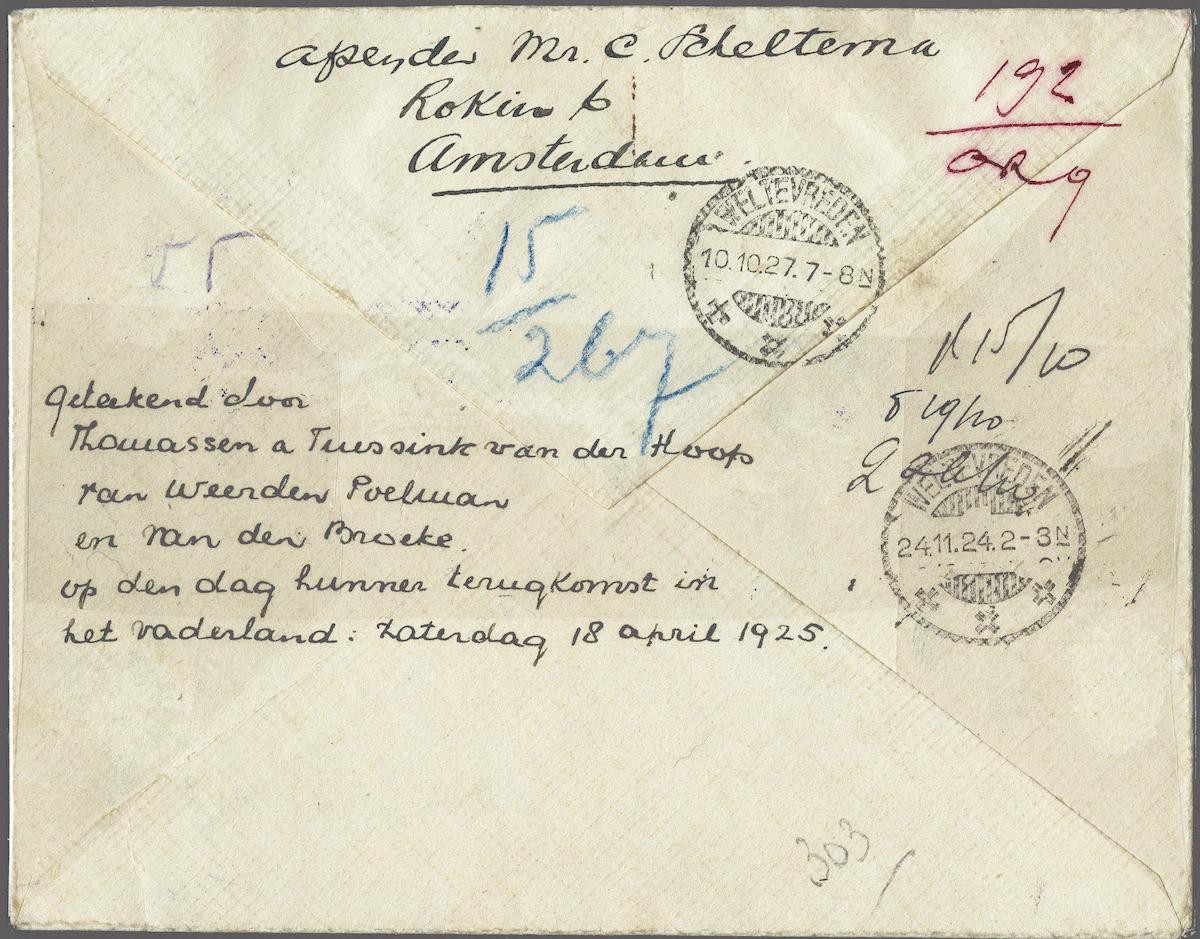 afzender Mr. C. Scheltema
Rokin 6
Amsterdam.
192
ORg
15
267
55
WELTEVREDEN
10.10.27.7-8N
15/10
19/10
WELTEVREDEN
24.11.24.2-3N
geteekend door
Thomassen a Tuessink van der Hoop
van Weerden Poelman
en van den Broeke.
op den dag hunner terugkomst in
het vaderland: Zaterdag 18 april 1925.
303